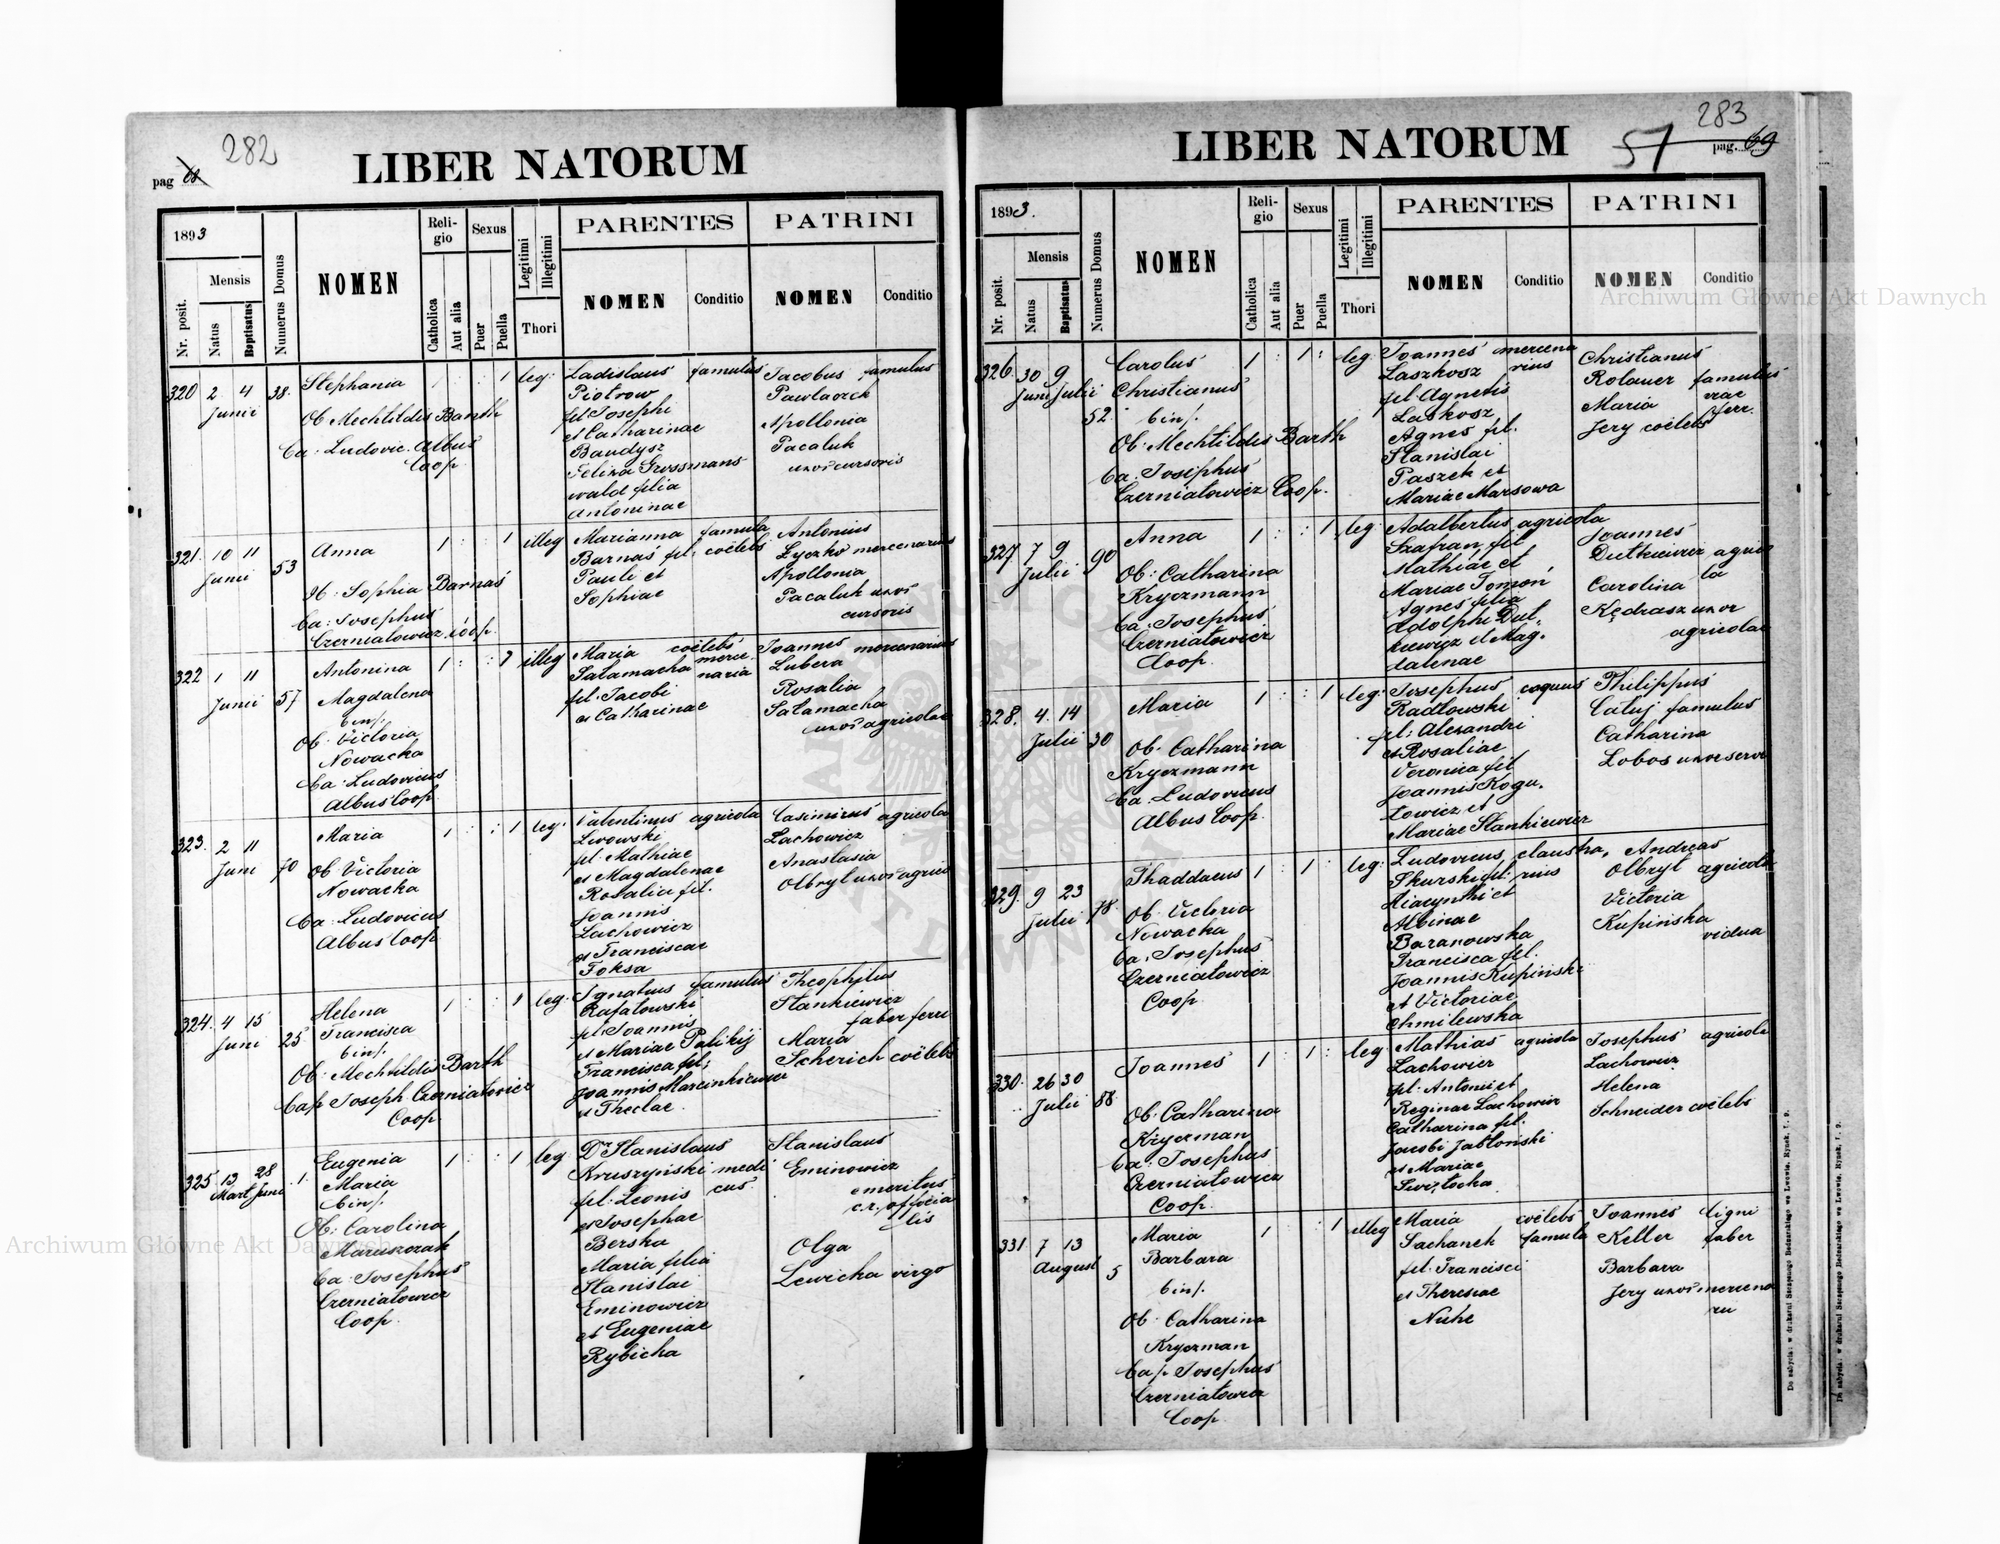 282
pag
LIBER NATORUM
1893
Nr. posit.
Mensis
Natus
Baptisatus
Numerus Domus
NOMEN
Religio
Catholica
Aut alia
Sexus
Puer
Puella
Legitimi
Illegitimi
Thori
PARENTES
NOMEN
Conditio
PATRINI
NOMEN
Conditio
320 2 4 Junii 38.
Stephania
Ob Mechtildis Barth
Ba: Ludovic. Albus
Coop.
1 leg:
Ladislaus famulus
Piotrow
fil Josephi
et Catharinae
Baudysz
Felixa Grossmans
wald filia
Antoninae
Jacobus famulus
Pawlaczek
Apollonia
Pacaluk
uxor cursoris
321. 10 11 Junii 53
Anna
Ob: Sophia Barnaś
Ba: Josephus
Czerniatowicz Coop.
1 1 illeg
Marianna famula
Barnaś fil: coëlebs
Pauli et
Sophiae
Antonius
Łyczko mercenarius
Apollonia
Pacaluk uxor
cursoris
322 1 11 Junii 57
Antonina
Magdalena
bin/.
Ob: Victoria
Nowacka
Ba: Ludovicus
Albus Coop.
1 1 illeg
Maria coëlebs
Sałamacha mercenaria
fil: Jacobi
et Catharinae
Joannes mercenarius
Lubera
Rosalia
Sałamacha
uxor agricolae
323. 2 11 Juni 70
Maria
Ob: Victoria
Nowacka
Ba: Ludovicus
Albus Coop.
1 1 leg:
Valentinus agricola
Lwowski
fil: Mathiae
et Magdalenae
Rosalia fil.
Joannis
Lachowicz
et Franciscae
Foksa
Casimirus agricola
Lachowicz
Anastasia
Olbryt uxor agrico
324. 4 15 Juni 25
Helena
Francisca
bin/.
Ob: Mechtildis Barth
Bap Joseph Czerniatowicz
Coop
1 1 leg:
Ignatius famulus
Rafałowski
fil: Joannis
et Mariae Palikij
Francisca fil;
Joannis Marcinkiewicz
et Theclae.
Theophilus
Stankiewicz
faber ferr
Maria
Scherich coëlebs
325 13 28 Mart Juni 1.
Eugenia
Maria
bin/.
Ob: Carolina
Maruszczak
Ba: Josephus
Czerniatowicz
Coop.
1 1 leg
Dr Stanislaus
Kruszyński medicus
fil: Leonis
et Josephae
Berska
Maria filia
Stanislai
Eminowicz
et Eugeniae
Rybicka
Stanislaus
Eminowicz
emeritus
c.r. officia
lis
Olga
Lewicka virgo
283
57
pag. 69
LIBER NATORUM
1893.
Nr. posit.
Mensis
Natus
Baptisatus
Numerus Domus
NOMEN
Religio
Catholica
Aut alia
Sexus
Puer
Puella
Legitimi
Illegitimi
Thori
PARENTES
NOMEN
Conditio
PATRINI
NOMEN
Conditio
326. 30 9 Juni Julii 52.
Carolus
Christianus
bin/.
Ob: Mechtildis Barth
Ba: Josephus
Czerniatowicz Coop.
1 1 leg:
Joannes mercenarius
Laszkosz
fil: Agnetis
Laskosz
Agnes fil.
Stanislai
Paszek et
Mariae Marsowa
Christianus
Rolauer famulus
Maria
Jery coëlebs
327. 7 9 Julii 90
Anna
Ob: Catharina
Kryczmann
Ba: Josephus
Czerniatowicz
Coop.
1 1 leg:
Adalbertus agricola
Szafran, fil
Mathiae et
Mariae Tomoń
Agnes filia
Adolphi Dut
kiewicz et Mag.
dalenae
Joannes
Dutkiewicz agrico
la
Carolina
Kędrasz uxor
agricolae
328. 4. 14 Julii 30
Maria
Ob: Catharina
Kryczmann
Ba: Ludovicus
Albus Coop.
1 1 leg:
Josephus coquus
Radłowski
fil: Alexandri
et Rosaliae
Veronica fil
Joannis Kogu.
towicz et
Mariae Stankiewicz
Philippus
Całuj famulus
Catharina
Lobos uxor servi
329. 9 23 Julii 78.
Thaddaeus
Ob: Victoria
Nowacka
Ba: Josephus
Czerniatowicz
Coop.
1 1 leg:
Ludovicus claustra.
Skurski fil: rius
Hiacynthi et
Albinae
Baranowska
Francisca fil.
Joannis Kupiński
et Victoriae
Chmilewska
Andreas
Olbryt agricola
Victoria
Kupińska
vidua
330. 26 30 Julii 88
Joannes
Ob: Catharina
Kryczman
Ba: Josephus
Czerniatowicz
Coop.
1 1 leg
Mathias agricola
Lachowicz
fil: Antoni et
Reginae Lachowicz
Catharina fil.
Jacobi Jabłoński
et Mariae
Świżtocka
Josephus agricola
Lachowicz
Helena
Schneider coëlebs
331. 7 13 August 5
Maria
Barbara
bin/.
Ob: Catharina
Kryczman
Bap Josephus
Czerniatowicz
Coop.
1 1 illeg
Maria coëlebs
Sachanek famula
fil: Francisci
et Theresiae
Nuhe
Joannes ligni
Keller faber
Barbara
Jery uxor mercena
rii
Do nabycia: w drukarni Szczęsnego Bednarskiego we Lwowie, Rynek, l. 9.
Do nabycia: w drukarni Szczęsnego Bednarskiego we Lwowie, Rynek, l. 9.
Archiwum Główne Akt Dawnych
Archiwum Główne Akt Dawnych